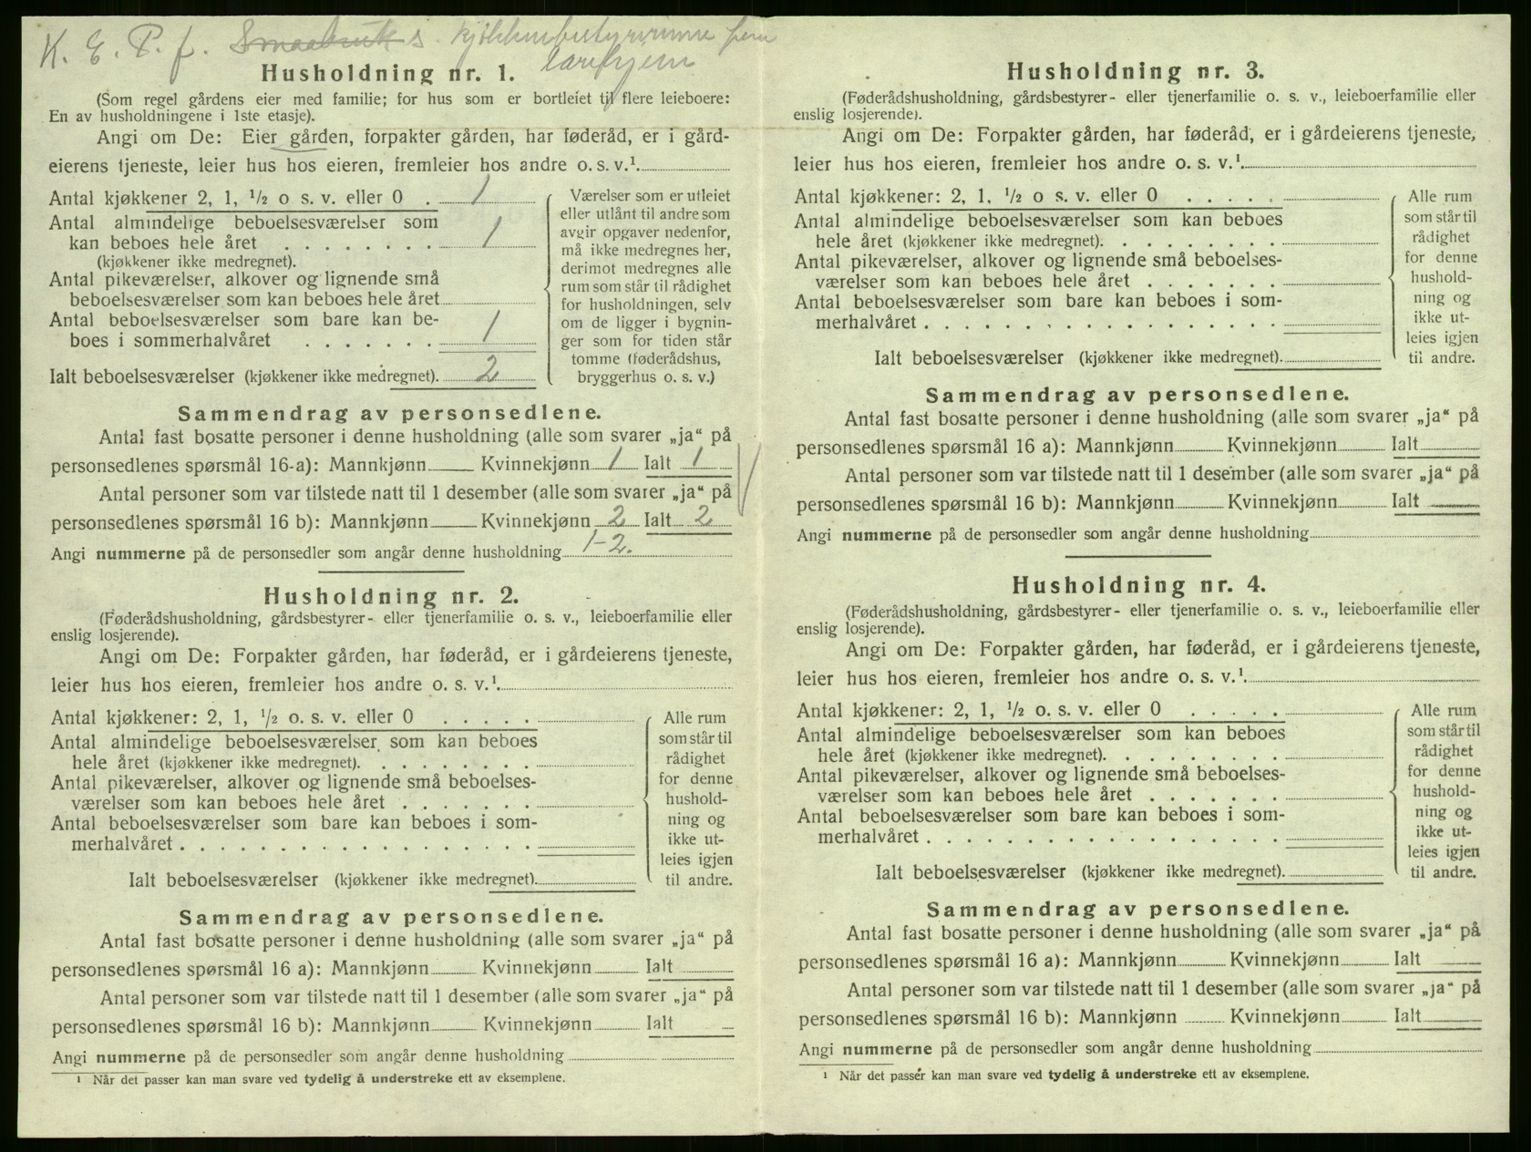 K. E. P. f. Smaabruk s. kjøkkenbestyrerinne
Husholdning nr. 1.
(Som regel gårdens eier med familie; for hus som er bortleiet til flere leieboere:
En av husholdningene i 1ste etasje).
Angi om De: Eier gården, forpakter gården, har føderåd, er i gård-
eierens tjeneste, leier hus hos eieren, fremleier hos andre o. s. v.¹
Antal kjøkkener 2, 1, ½ o s. v. eller 0 . 1
Antal almindelige beboelsesværelser som
kan beboes hele året . . . . . . . . 1
(kjøkkener ikke medregnet).
Antal pikeværelser, alkover og lignende små
beboelsesværelser som kan beboes hele året
Antal beboelsesværelser som bare kan be-
boes i sommerhalvåret . . . . . . . 1
Ialt beboelsesværelser (kjøkkener ikke medregnet). 2
Værelser som er utleiet
eller utlånt til andre som
avgir opgaver nedenfor,
må ikke medregnes her,
derimot medregnes alle
rum som står til rådighet
for husholdningen, selv
om de ligger i bygnin-
ger som for tiden står
tomme (føderådshus,
bryggerhus o. s. v.)
Sammendrag av personsedlene.
Antal fast bosatte personer i denne husholdning (alle som svarer „ja“ på
personsedlenes spørsmål 16 a): Mannkjønn Kvinnekjønn 1 Ialt 1
Antal personer som var tilstede natt til 1 desember (alle som svarer „ja“ på
personsedlenes spørsmål 16 b): Mannkjønn Kvinnekjønn 2 Ialt 2
Angi nummerne på de personsedler som angår denne husholdning 1-2.
Husholdning nr. 2.
(Føderådshusholdning, gårdsbestyrer- eller tjenerfamilie o. s. v., leieboerfamilie eller
enslig losjerende).
Angi om De: Forpakter gården, har føderåd, er i gårdeierens tjeneste,
leier hus hos eieren, fremleier hos andre o. s. v.¹
Antal kjøkkener: 2, 1, ½ o. s. v. eller 0 . . . . .
Antal almindelige beboelsesværelser som kan beboes
hele året (kjøkkener ikke medregnet). . . . . . . . .
Antal pikeværelser, alkover og lignende små beboelses-
værelser som kan beboes hele året . . . . . . .
Antal beboelsesværelser som bare kan beboes i som-
merhalvåret . . . . . . . . . . . . . . . . . .
Ialt beboelsesværelser (kjøkkener ikke medregnet).
Alle rum
som står til
rådighet
for denne
hushold-
ning og
ikke ut-
leies igjen
til andre.
Sammendrag av personsedlene.
Antal fast bosatte personer i denne husholdning (alle som svarer „ja“ på
personsedlenes spørsmål 16 a): Mannkjønn Kvinnekjønn Ialt
Antal personer som var tilstede natt til 1 desember (alle som svarer „ja“ på
personsedlenes spørsmål 16 b): Mannkjønn Kvinnekjønn Ialt
Angi nummerne på de personsedler som angår denne husholdning
¹ Når det passer kan man svare ved tydelig å understreke ett av eksemplene.
Husholdning nr. 3.
(Føderådshusholdning, gårdsbestyrer- eller tjenerfamilie o. s. v., leieboerfamilie eller
enslig losjerende).
Angi om De: Forpakter gården, har føderåd, er i gårdeierens tjeneste,
leier hus hos eieren, fremleier hos andre o. s. v.¹
Antal kjøkkener: 2, 1, ½ o s. v. eller 0 . . . . .
Antal almindelige beboelsesværelser som kan beboes
hele året (kjøkkener ikke medregnet). . . . . . . . .
Antal pikeværelser, alkover og lignende små beboelses-
værelser som kan beboes hele året . . . . . . .
Antal beboelsesværelser som bare kan beboes i som-
merhalvåret . . . . . . . . . . . . . . . . . .
Ialt beboelsesværelser (kjøkkener ikke medregnet).
Alle rum
som står til
rådighet
for denne
hushold-
ning og
ikke ut-
leies igjen
til andre.
Sammendrag av personsedlene.
Antal fast bosatte personer i denne husholdning (alle som svarer „ja“ på
personsedlenes spørsmål 16 a): Mannkjønn Kvinnekjønn Ialt
Antal personer som var tilstede natt til 1 desember (alle som svarer „ja“ på
personsedlenes spørsmål 16 b): Mannkjønn Kvinnekjønn Ialt
Angi nummerne på de personsedler som angår denne husholdning
Husholdning nr. 4.
(Føderådshusholdning, gårdsbestyrer- eller tjenerfamilie o. s. v., leieboerfamilie eller
enslig losjerende).
Angi om De: Forpakter gården, har føderåd, er i gårdeierens tjeneste,
leier hus hos eieren, fremleier hos andre o. s. v.¹
Antal kjøkkener: 2, 1, ½ o. s. v. eller 0 . . . . .
Antal almindelige beboelsesværelser som kan beboes
hele året (kjøkkener ikke medregnet). . . . . . . . .
Antal pikeværelser, alkover og lignende små beboelses-
værelser som kan beboes hele året . . . . . . .
Antal beboelsesværelser som bare kan beboes i som-
merhalvåret . . . . . . . . . . . . . . . . . .
Ialt beboelsesværelser (kjøkkener ikke medregnet).
Alle rum
som står til
rådighet
for denne
hushold-
ning og
ikke ut-
leies igjen
til andre.
Sammendrag av personsedlene.
Antal fast bosatte personer i denne husholdning (alle som svarer „ja“ på
personsedlenes spørsmål 16 a): Mannkjønn Kvinnekjønn Ialt
Antal personer som var tilstede natt til 1 desember (alle som svarer „ja“ på
personsedlenes spørsmål 16 b): Mannkjønn Kvinnekjønn Ialt
Angi nummerne på de personsedler som angår denne husholdning
¹ Når det passer kan man svare ved tydelig å understreke ett av eksemplene.